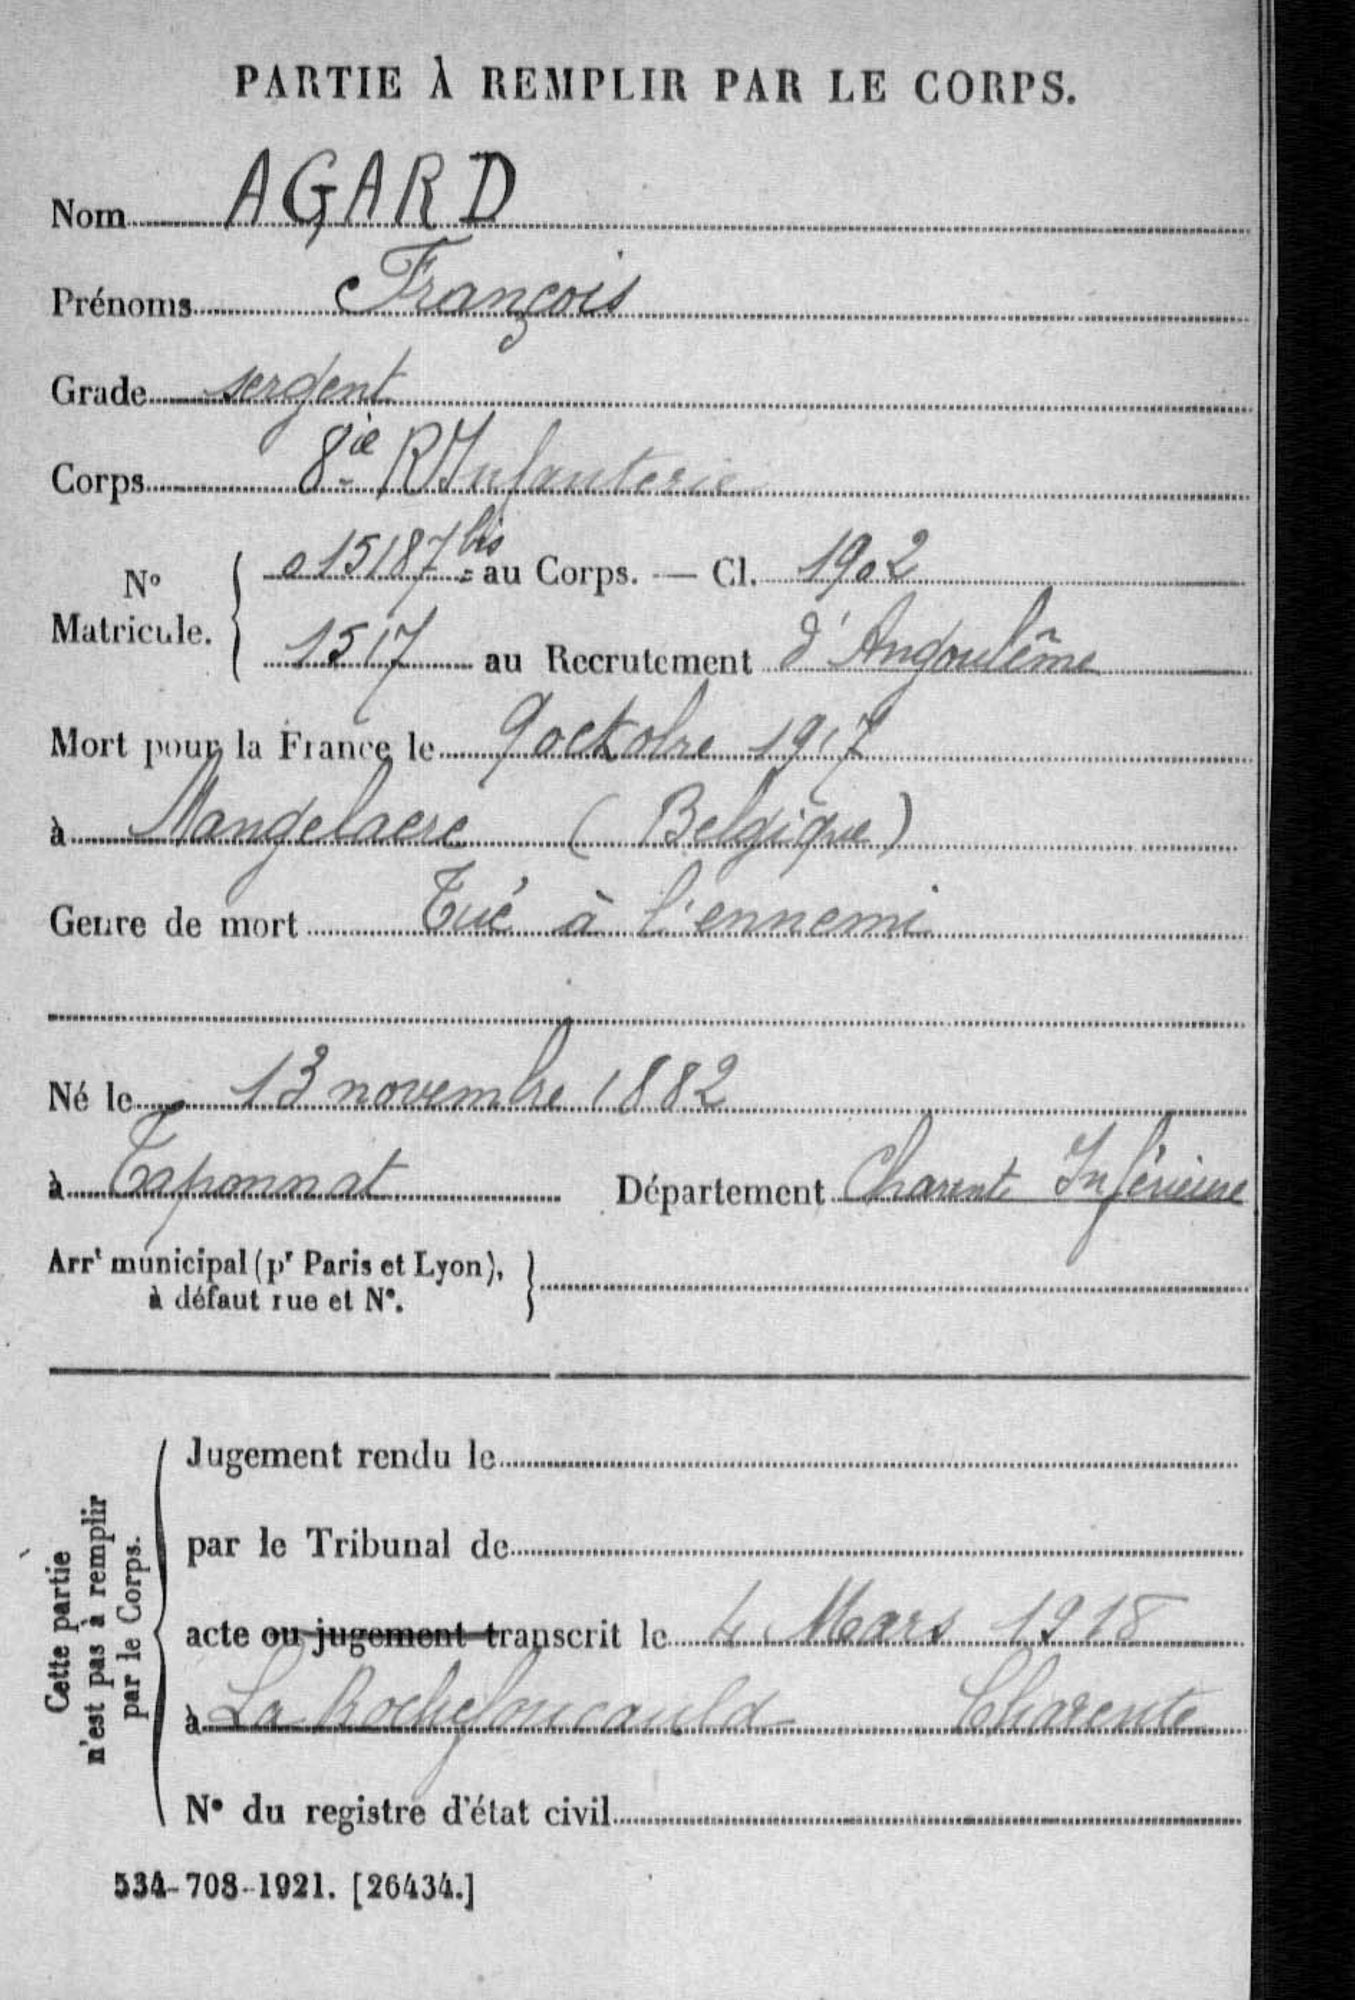 PARTIE À REMPLIR PAR LE CORPS.
Nom AGARD
Prénoms François
Grade sergent
Corps 8ie R Infanterie
No Matricule. { 015187 bis au Corps. — Cl. 1902
1517 au Recrutement d'Angoulême
Mort pour la France le 9 octobre 1917
à Mangelaere (Belgique)
Genre de mort Tué à l'ennemi
Né le 13 novembre 1882
à Taponnat Département Charente Inférieure
Arrt municipal (pr Paris et Lyon), }
à défaut rue et No.
Cette partie n'est pas à remplir par le Corps. {
Jugement rendu le
par le Tribunal de
acte ou jugement transcrit le 4 Mars 1918
à La Rochefoucauld Charente
No du registre d'état civil
534-708-1921. [26434.]